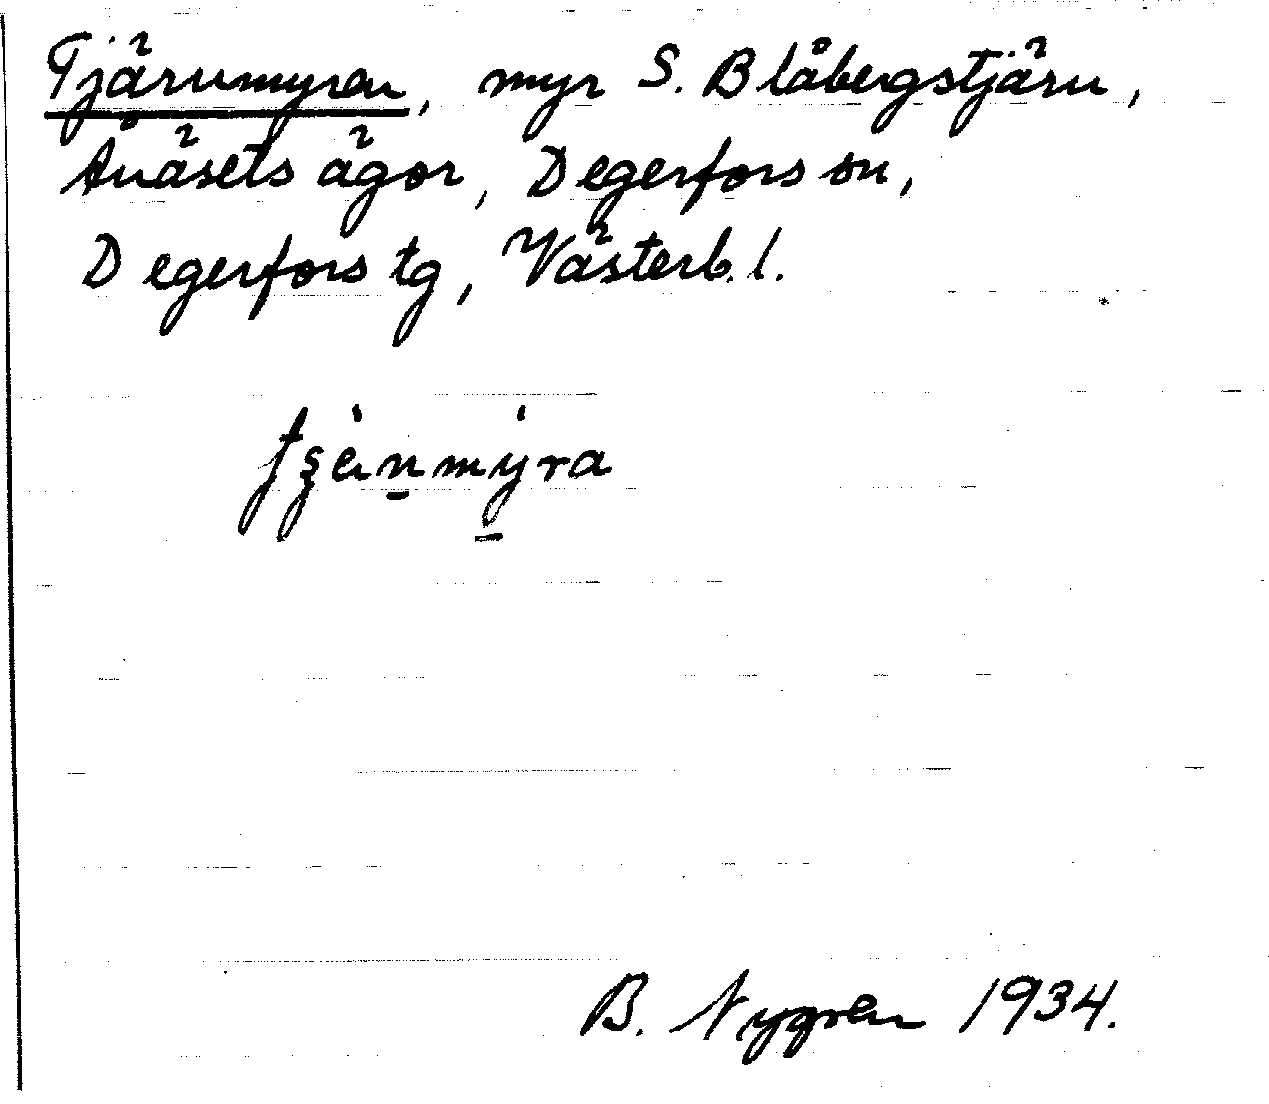 Tjärnmyren, myr S. Blåbergstjärn,
Ånäsets ägor, Degerfors sn,
Degerfors tg, Västerb. l.
B. Nygren 1934.